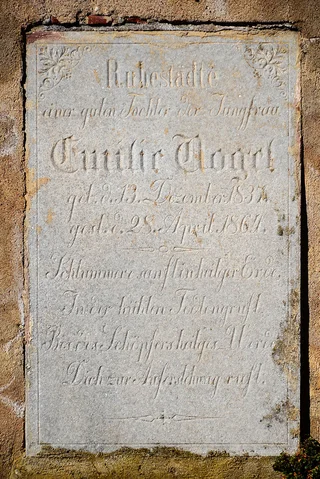 Ruhestädte
einer guten Tochter der Jungfrau
Emilie Vogel
geb. d. 13. Dezember
gest. d. 28. April 1867.
Schlummere sanft in heilger Erde
In der kühlen Todtengruft
Bis des Schöpfers heilges Werde
Dich zur Auferstehung ruft.